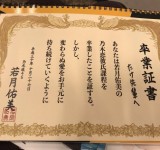 卒業証書
たけ先輩へ
あなたは若月佑美の
乃木恋彼氏課程を
卒業したことを証する。
しかし、
変わらぬ愛をお手元に
持ち続けていくように
若月佑美